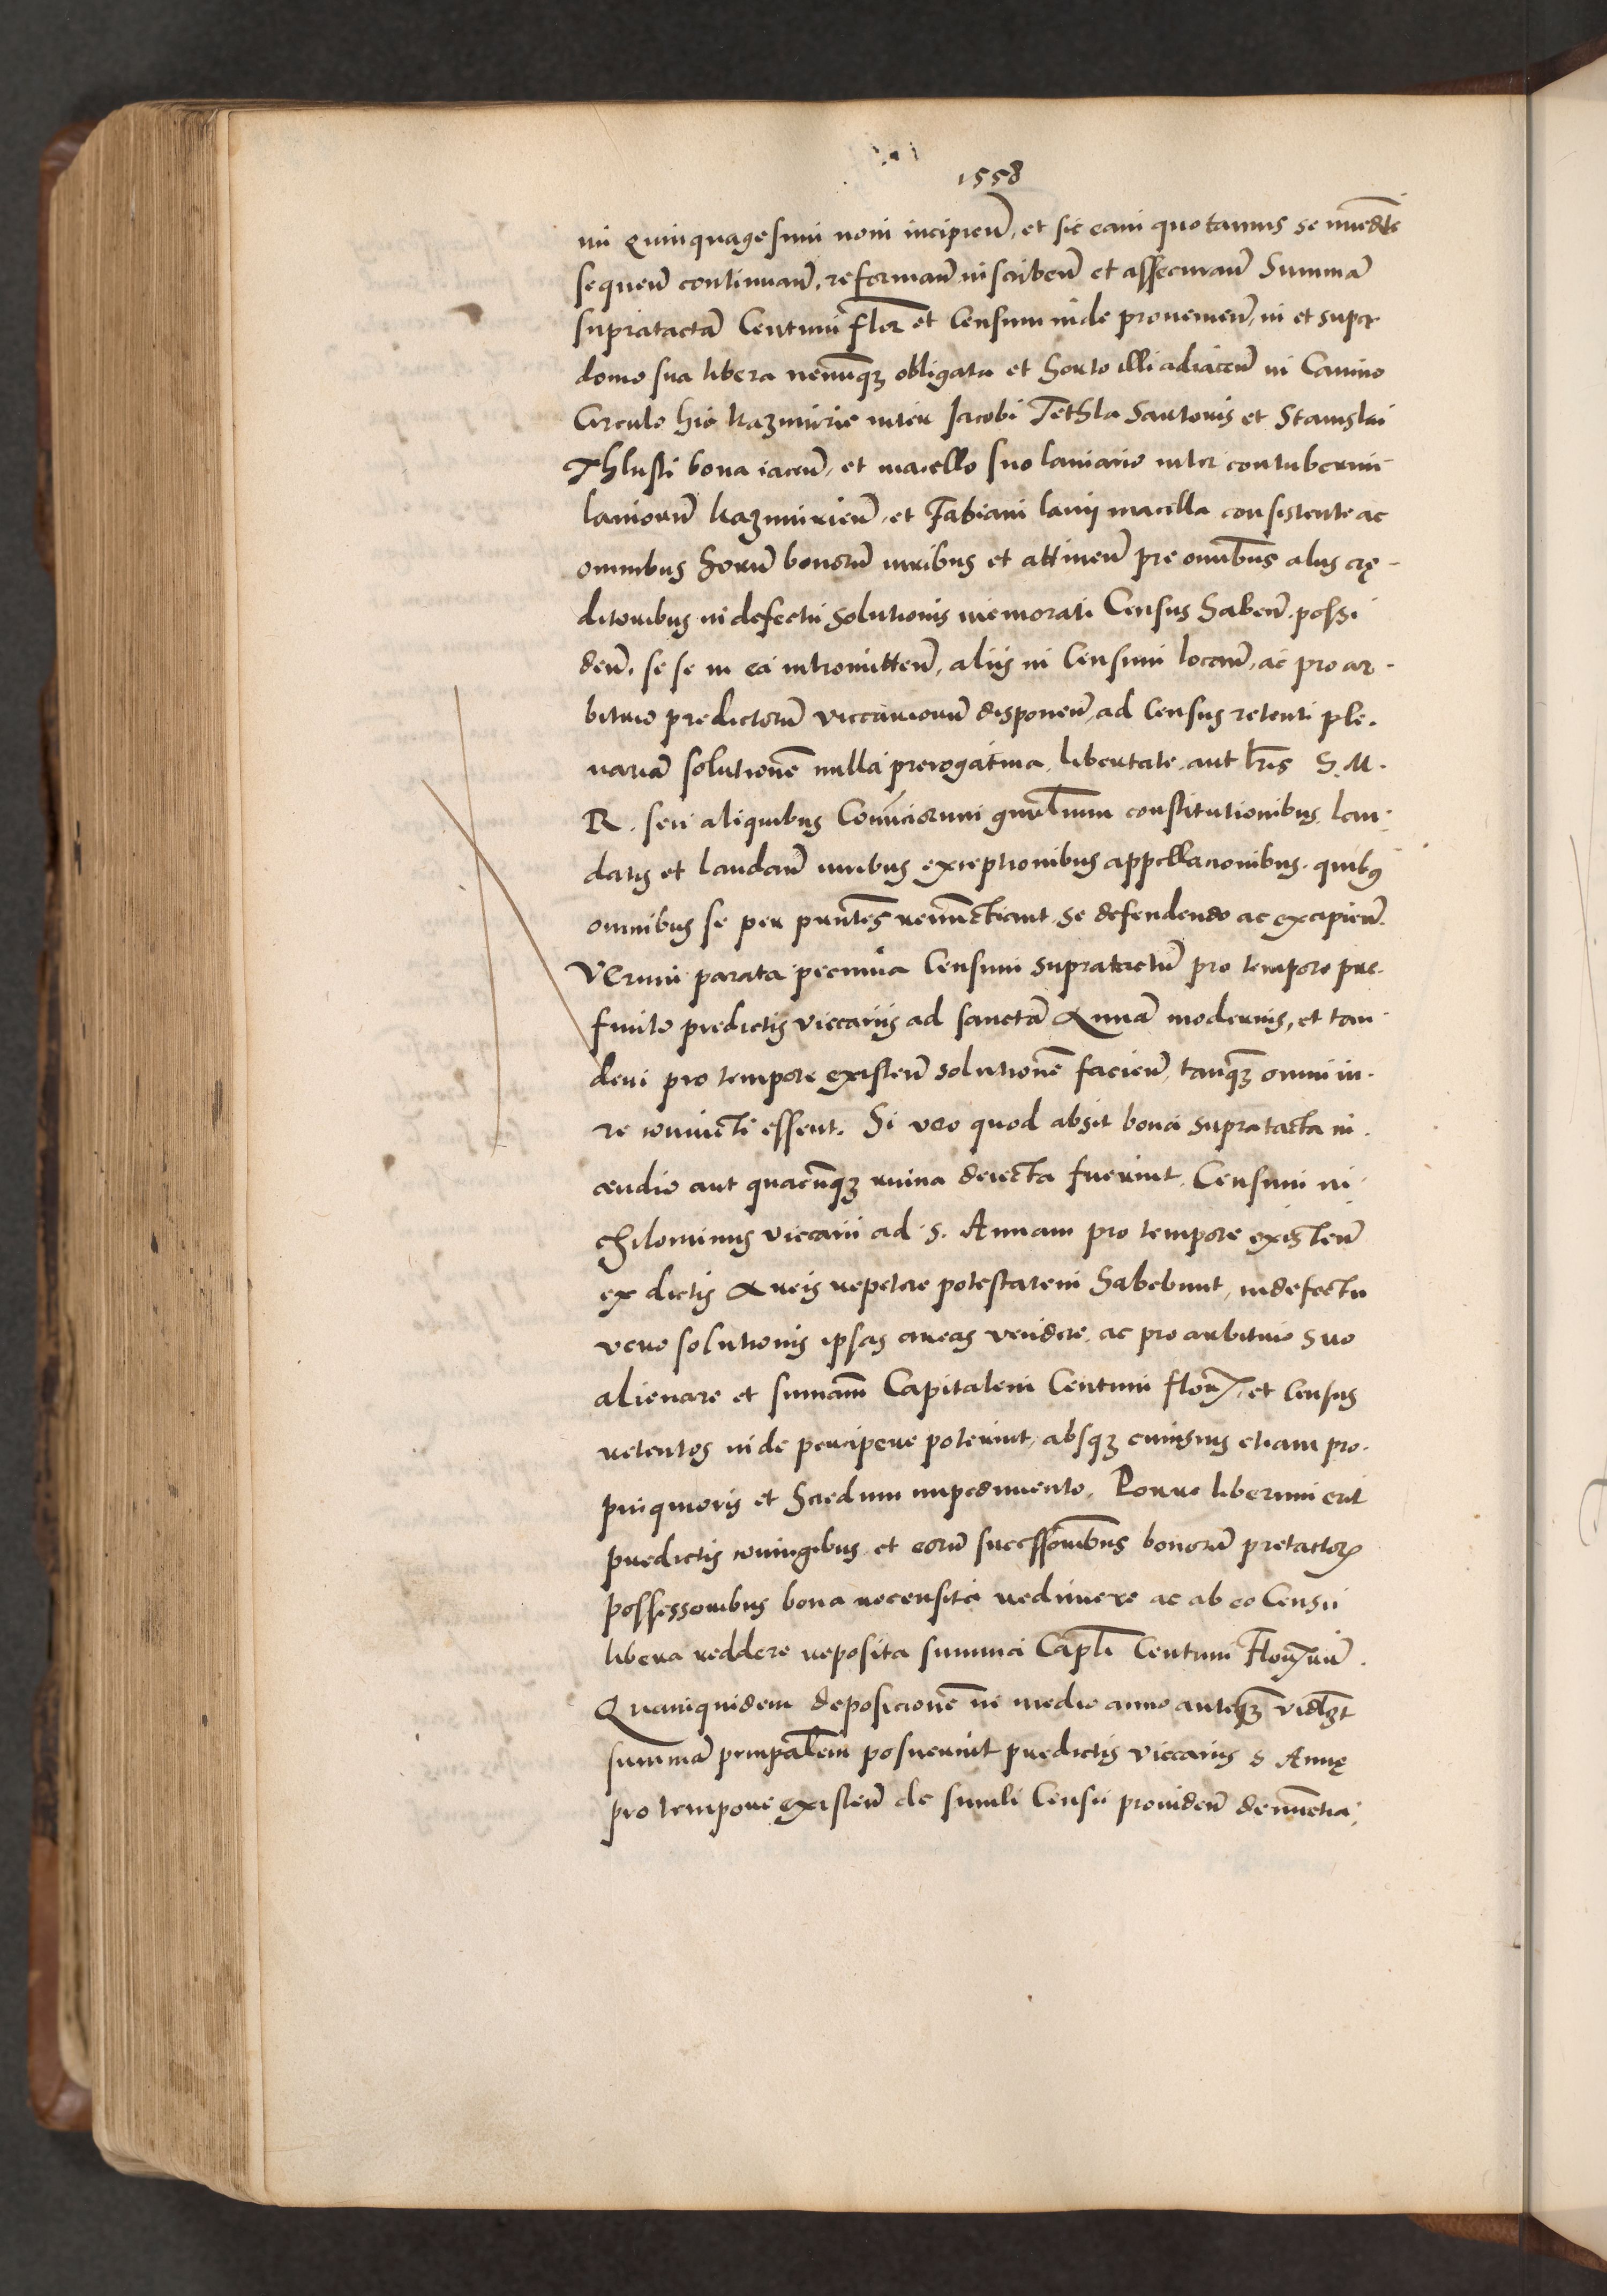 1558
mi Quinquagesimi noni incipien̄, et sic eam quotannis se mūedte
sequen̄ continuan̄, reforman̄ inscriben̄ et assecuran̄ Summā
supratactā Centum flor et Censum inde provenien̄, in et super
domo sua libera nemīq3 obligata et horto illi adiacen̄ in Camino
Circulo hic Kazmirie inter Jacobi Tethla Sartoris et Stanislai
Thlusti bona iacen̄, et macello suo laniario inter contuberniī
laniorū Kazmirien̄, et Fabiani lanij macella consistente ac
omnibus horū bonorū iuribus et attinen̄ pre omībus alijs crę-
ditoribus in defectu solutionis memorati Census haben̄, possi
den̄, se se in ea intromitten̄, alijs in Censum locan̄, ac pro ar-
bitrio predictorū viccariorū disponen̄, ad Census retenti ple-
nariā solutionē nulla prerogatiua, libertate, aut lr̄is S. M.
R. seu aliquibus Comiciorum gnr̄alium constitutionibus, lau-
datis et laudan̄ iuribus exceptionibus appellacionibus, quib9
omnibus se per pn̄tes renūctiant, se defendendo ac excipien̄.
Verum parata pecunia Censum supratactū pro tempore pre-
finito predictis viccarijs ad sanctā Annā modernis, et tan-
dem pro tempore existen̄ solutionē facien̄, tanq̄3 omni iu-
re conuicti essent. Si vero quod absit bona supratacta in-
cendio aut quacūq3 ruina deiecta fuerint, Censum ni-
chilominus viccarii ad S. Annam pro tempore existen̄
ex dictis Areis repetere potestatem habebunt, in defectu
vero solutionis ipsas areas vendere, ac pro arbitrio suo
alienare et sumam̄ Capitalem Centum flor, et Census
retentos inde percipere poterint, absq3 cuiusuis etiam pro-
pinquioris et hæredum impedimento. Porro liberum erit
predictis coniugibus et eorū successoribus bonorū pretactor
possessoribus bona recensita redimere ac ab eo Censu
libera reddere reposita summa Capl̄i Centum Florrū.
Quamquidem deposicionē in medio anno anteq̄3 videl3t
summā prnpalem posuerint predictis viccarijs S Annę
pro tempore existen̄ de simili Censu prouiden̄ denūctia-